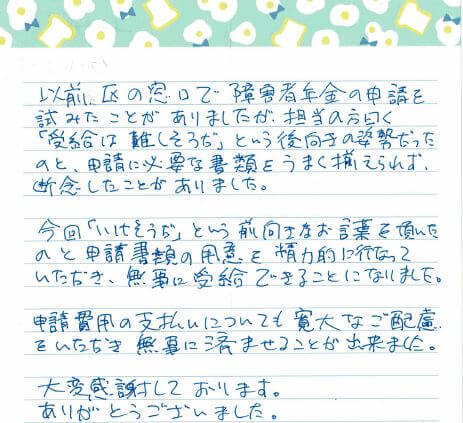 以前、区の窓口で障害者年金の申請を
試みたことがありましたが、担当の方曰く
「受給は難しそうだ」という後向きの姿勢だった
のと、申請に必要な書類をうまく揃えられず、
断念したことがありました。
今回「いけそうだ」という前向きなお言葉を頂いた
のと申請書類の用意を精力的に行なって
いただき、無事に受給できることになりました。
申請費用の支払いについても寛大なご配慮
をいただき無事に済ませることが出来ました。
大変感謝しております。
ありがとうございました。